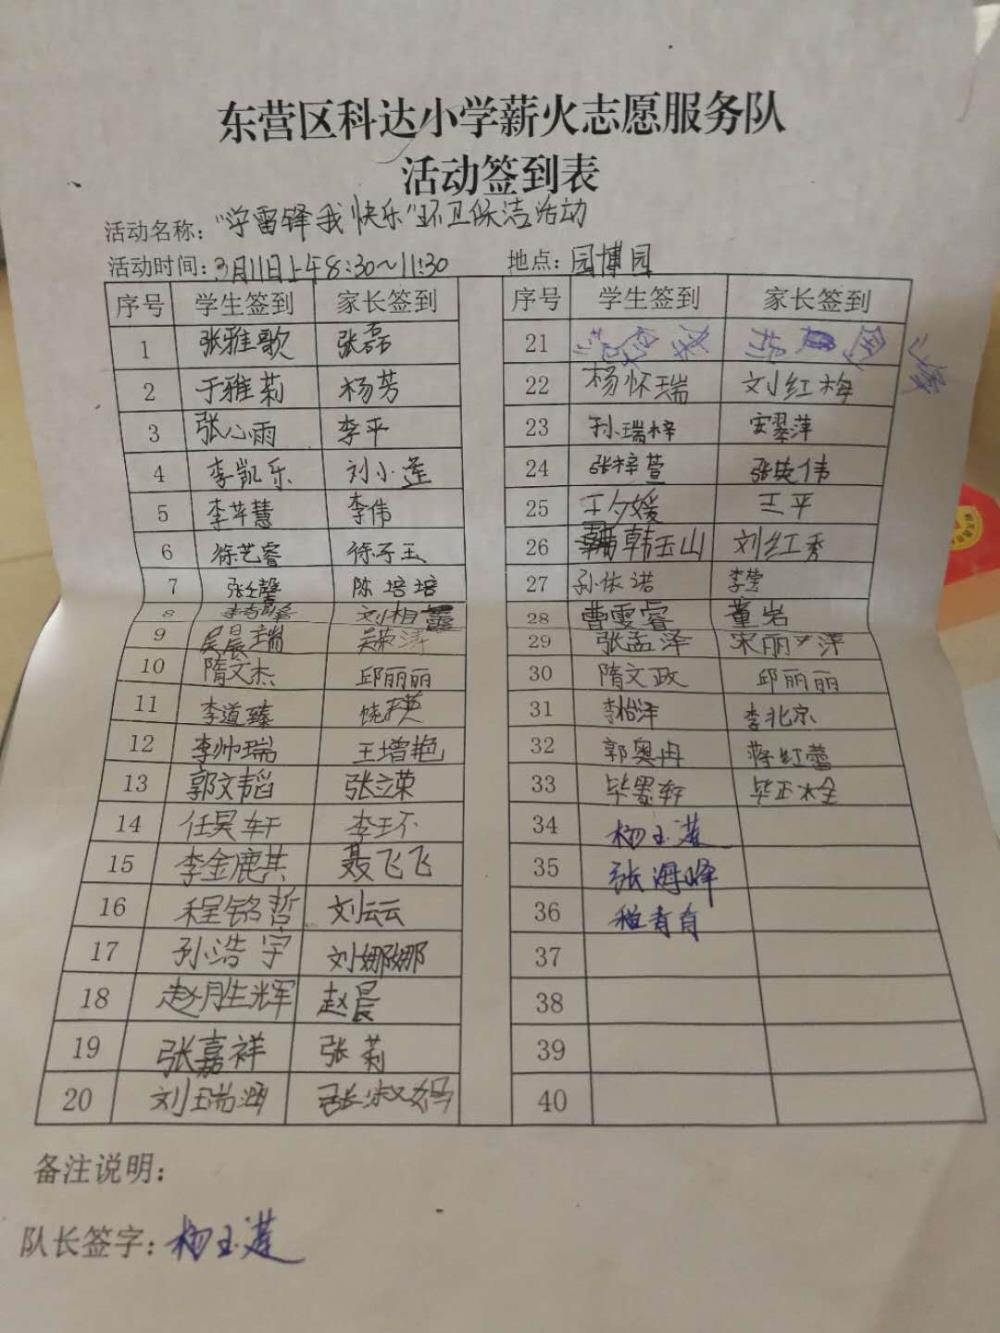 东营区科达小学薪火志愿服务队
活动签到表
活动名称："学雷锋我快乐"环卫保洁活动
活动时间：3月11日上午8:30～11:30 地点：园博园
序号 学生签到 家长签到 序号 学生签到 家长签到
1 张雅歌 张磊 21
2 于雅莉 杨芳 22 杨怀瑞 刘红梅
3 张心雨 李平 23 孙瑞梓 安翠萍
4 李凯乐 刘小莲 24 张梓萱 张英伟
5 李苹慧 李伟 25 王夕媛 王平
6 徐艺睿 徐子玉 26 韩玉山 刘红秀
7 陈培培 27 孙依诺 李莹
8 刘相霞 28 曹雯睿 董岩
9 吴晨瑞 29 张孟泽 宋丽萍
10 隋文杰 邱丽丽 30 隋文政 邱丽丽
11 李道臻 饶英 31 李怡洋 李北京
12 李帅瑞 王增艳 32 郭奥冉 蒋红蕾
13 郭文韬 张立荣 33 毕墨轩
14 任昊轩 李环 34 杨玉莲
15 李金鹿其 聂飞飞 35 张海峰
16 程铭哲 刘云云 36
17 孙浩宇 刘娜娜 37
18 赵胜辉 赵晨 38
19 张嘉祥 张莉 39
20 刘瑞涵 张淑娟 40
备注说明：
队长签字：杨玉莲